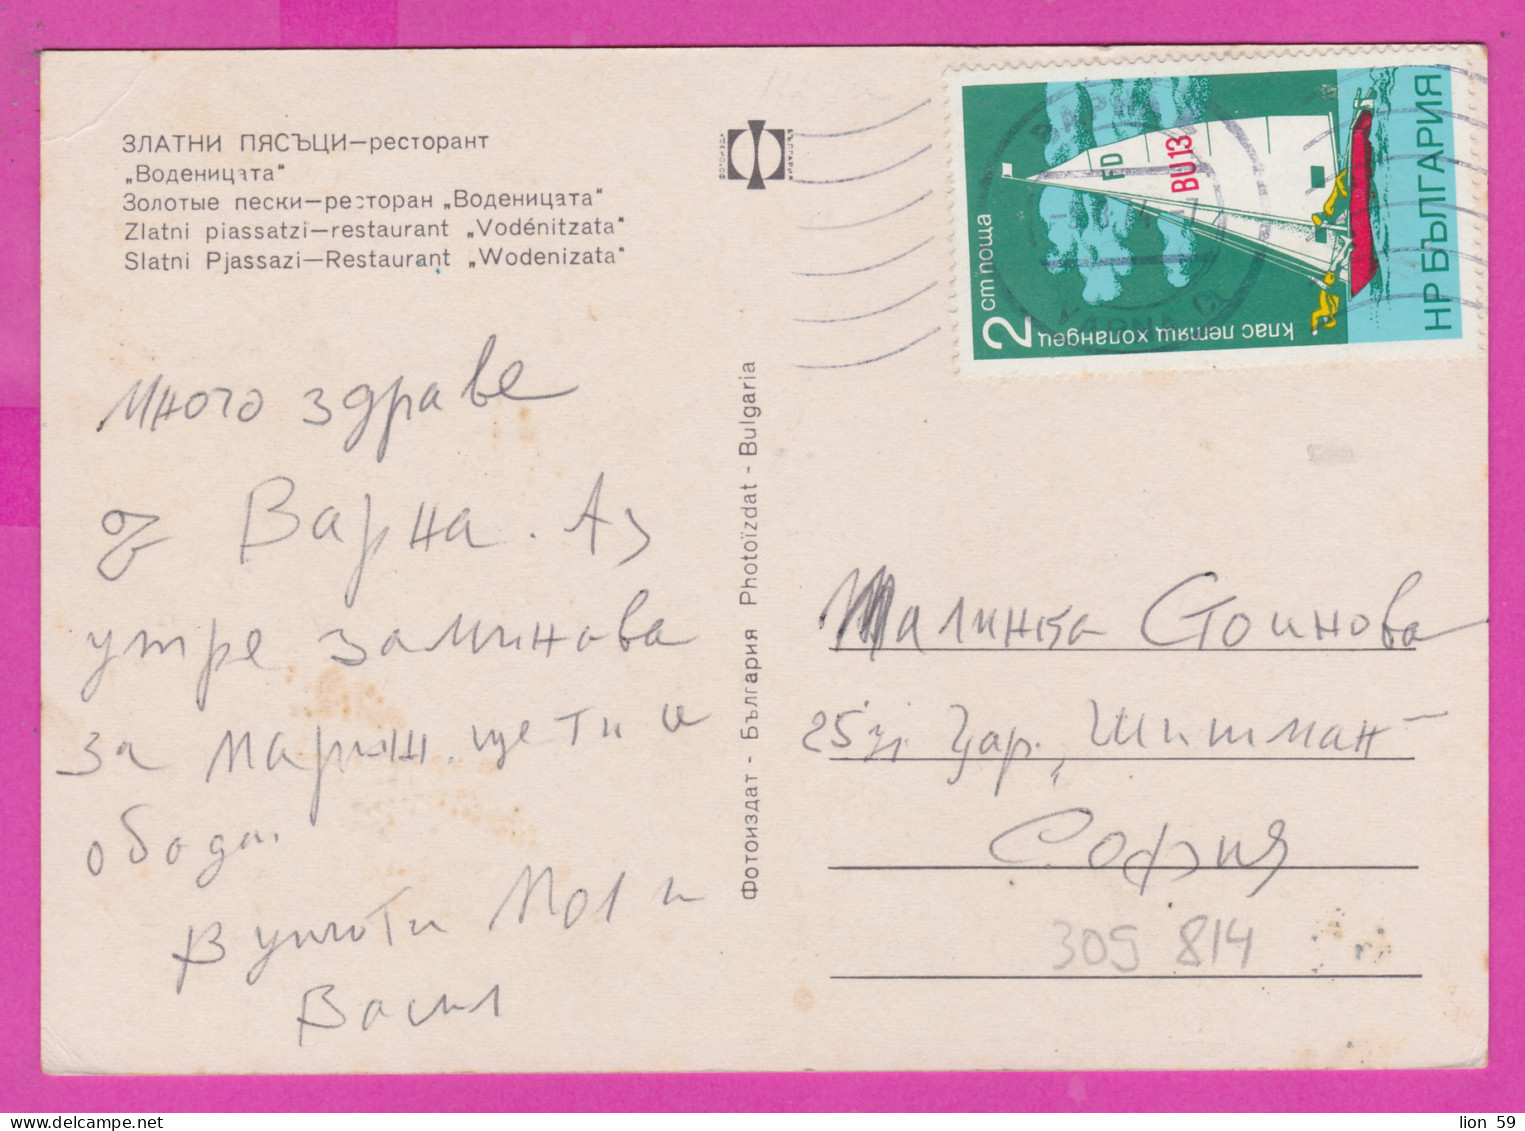 ЗЛАТНИ ПЯСЪЦИ—ресторант
„Воденицата“
Золотые пески—ресторан „Воденицата“
Zlatni piassatzi—restaurant „Vodénitzata“
Slatni Pjassazi—Restaurant „Wodenizata“
ФОТОИЗДАТ
БЪЛГАРИЯ
Много здраве
от Варна. Аз
утре заминава
за Мариш. ще ти и
обода.
Васил
Фотоиздат - България Photoïzdat - Bulgaria
НР БЪЛГАРИЯ
2 ст поща
клас летящ холандец
FD
BU13
ВАРНА
VARNA
Малинка Стоинова
25 Цар „Шишман“
София
309 814
lion 59